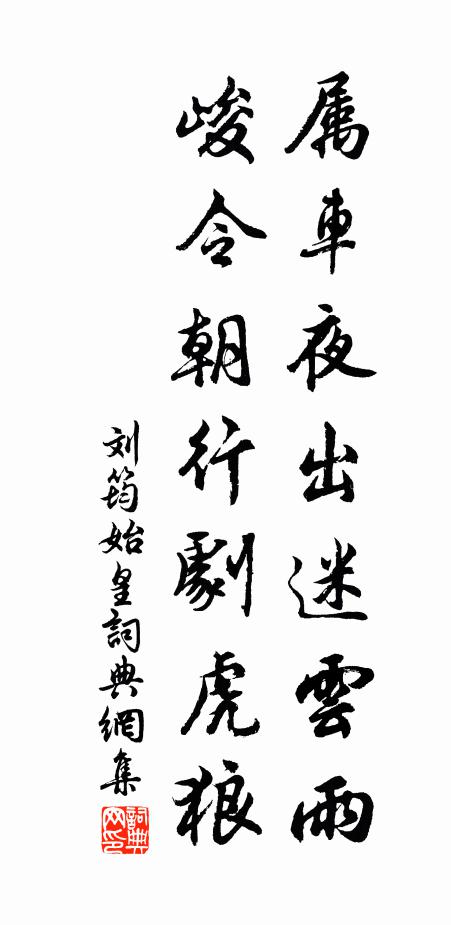 属車夜出迷雲雨
峻令朝行劇虎狼
刘筠始皇詞典網集
詞典
网印